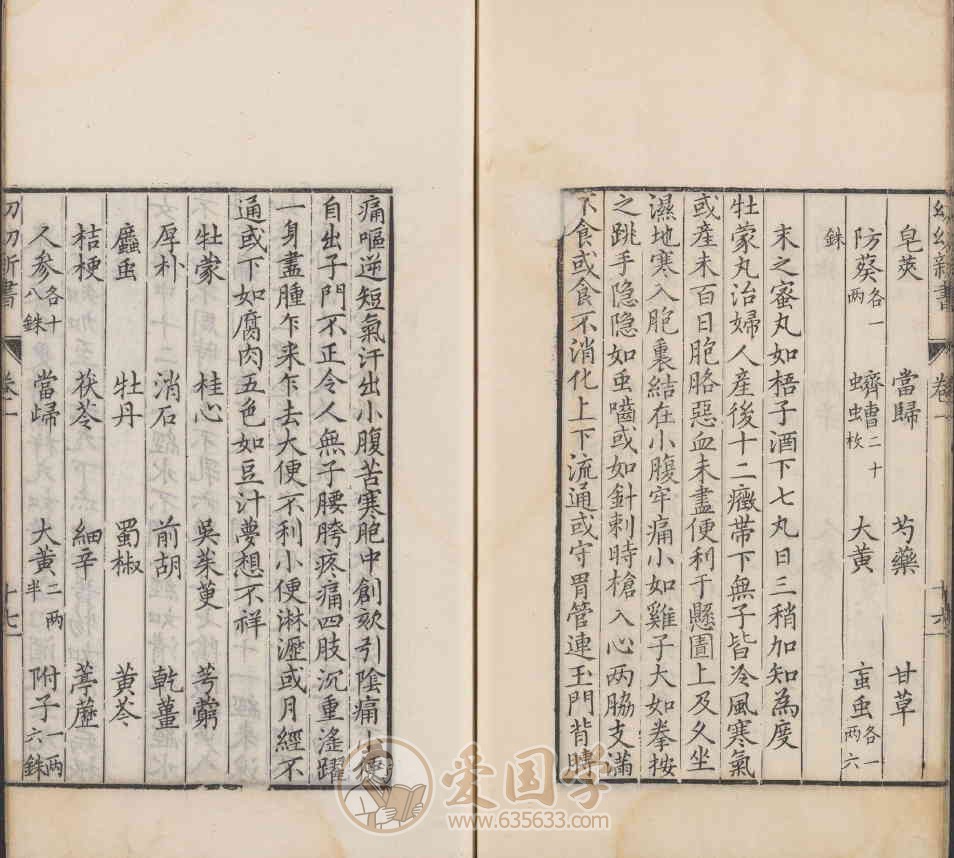 幼幼新書
卷一
十六
皂莢 當歸 芍藥 甘草
防葵各一兩 蠐螬二十枚 大黃 䖟虫各一兩六
銖
末之蜜丸如梧子酒下七丸日三稍加知為度
牡蒙丸治婦人産後十二癥帶下無子皆冷風寒氣
或産未百日胞胳惡血未盡便利于懸圊上及久坐
濕地寒入胞裏結在小腹牢痛小如雞子大如拳按
之跳手隐隐如虫嚙或如針刺時槍入心两脇支滿
不食或食不消化上下流通或守胃管連玉門背膊
痛嘔逆短氣汗出小腹苦寒胞中創欬引陰痛小便
自出子門不正令人無子腰胯疼痛四肢沉重滛躍
一身盡腫乍来乍去大便不利小便淋瀝或月經不
通或下如腐肉五色如豆汁夢想不祥
牡蒙 桂心 吳茱萸 芎藭
厚朴 消石 前胡 乾薑
䗪虫 牡丹 蜀椒 黃芩
桔梗 茯苓 細辛 葶藶
人参各十八銖 當歸 大黃二两半 附子一两六銖
幼幼新書
卷一
十七
爱国学
www.635633.com